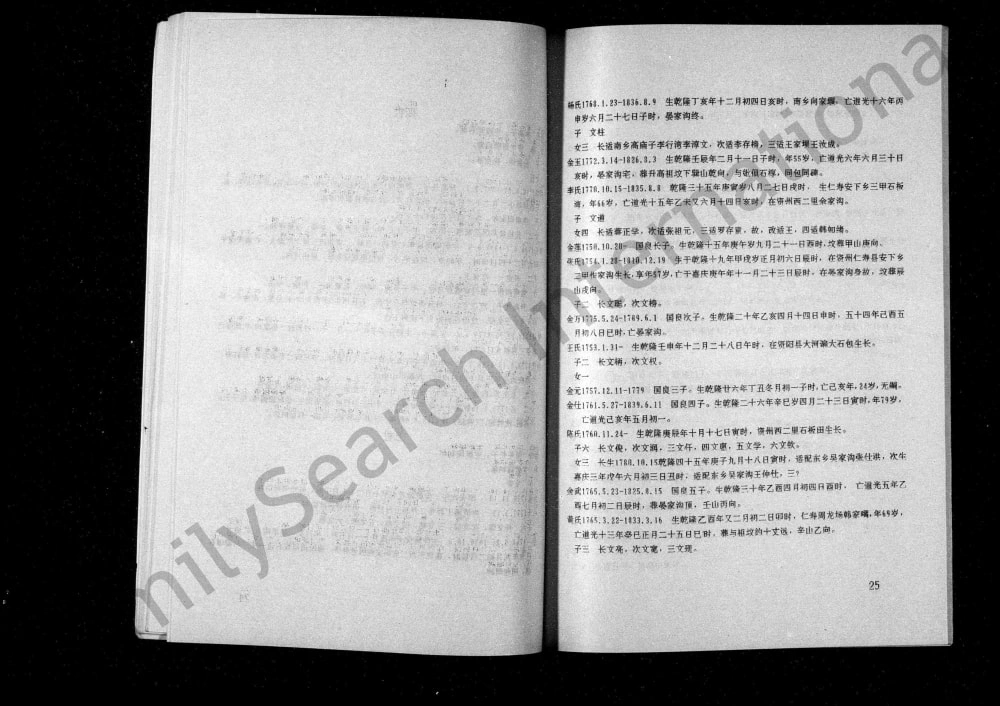 杨氏1768.1.23-1836.8.9 生乾隆丁亥年十二月初四日亥时，南乡向家堰，亡道光十六年丙
申岁六月二十七日子时，晏家沟终。
子 文柱
女三 长适南乡高庙子李行湾李淳文，次适李存榜，三适王家坝王汝成。
金玉1772.3.14-1826.8.3 生乾隆壬辰年二月十一日子时，年55岁，亡道光六年六月三十日
亥时，晏家沟宅，葬升高祖坟下巽山乾向，与张俱石椁，同包同碑。
李氏1770.10.15-1835.8.8 乾隆三十五年庚寅岁八月二七日戌时， 生仁寿安下乡三甲石板
湾，年66岁，亡道光十五年乙未又六月十四日亥时，在资州西二里余家沟。
子 文道
女四 长适蔡正学，次适张祖元，三适罗存富，故，改适王，四适韩朝绪。
金莲1750.10.20- 国良长子。生乾隆十五年庚午岁九月二十一日酉时，坟葬甲山庚向。
1754.1.28-1810.12.19 生于乾隆十九年甲戌岁正月初六日辰时，在资州仁寿县安下乡
二甲作家沟生长，享年57岁，亡于嘉庆庚午年十一月二十三日辰时，在晏家沟身故，坟葬辰
山戌向。
子二 长文聪，次文榜。
金万1775.5.24-1789.6.1 国良次子。生乾隆二十年乙亥四月十四日申时，五十四年己酉五
月初八日巳时，亡晏家沟。
王氏1753.1.31- 生乾隆壬申年十二月二十八日午时，在资阳县大河滩大石包生长。
子二 长文辆，次文权。
女一
金元1757.12.11-1779 国良三子。生乾隆廿六年丁丑冬月初一子时，亡己亥年，24岁，无嗣。
金仕1761.5.27-1839.6.11 国良四子。生乾隆二十六年辛巳岁四月二十三日寅时，年79岁，
亡道光己亥年五月初一。
陈氏1760.11.24- 生乾隆庚辰年十月十七日寅时，资州西二里石板田生长。
子六 长文俊，次文润，三文仟，四文惠，五文学，六文钦。
女三 长生1780.10.15乾隆四十五年庚子九月十八日寅时，适配东乡吴家沟张仕洪，次生
嘉庆三年戊午六月初三日丑时，适配东乡吴家沟王仲仕，三？
金斌1765.5.23-1825.8.15 国良五子。生乾隆三十年乙酉四月初四日酉时， 亡道光五年乙
酉七月初二日辰时，葬晏家沟顶，壬山丙向。
黄氏1765.3.22-1833.3.16 生乾隆乙酉年又二月初二日卯时，仁寿周龙场韩家嘴，年69岁，
亡道光十三年癸巳正月二十五日巳时，葬与祖坟的十丈远，辛山乙向。
子三 长文亮，次文宽，三文理。
25
nilySearch Internationa